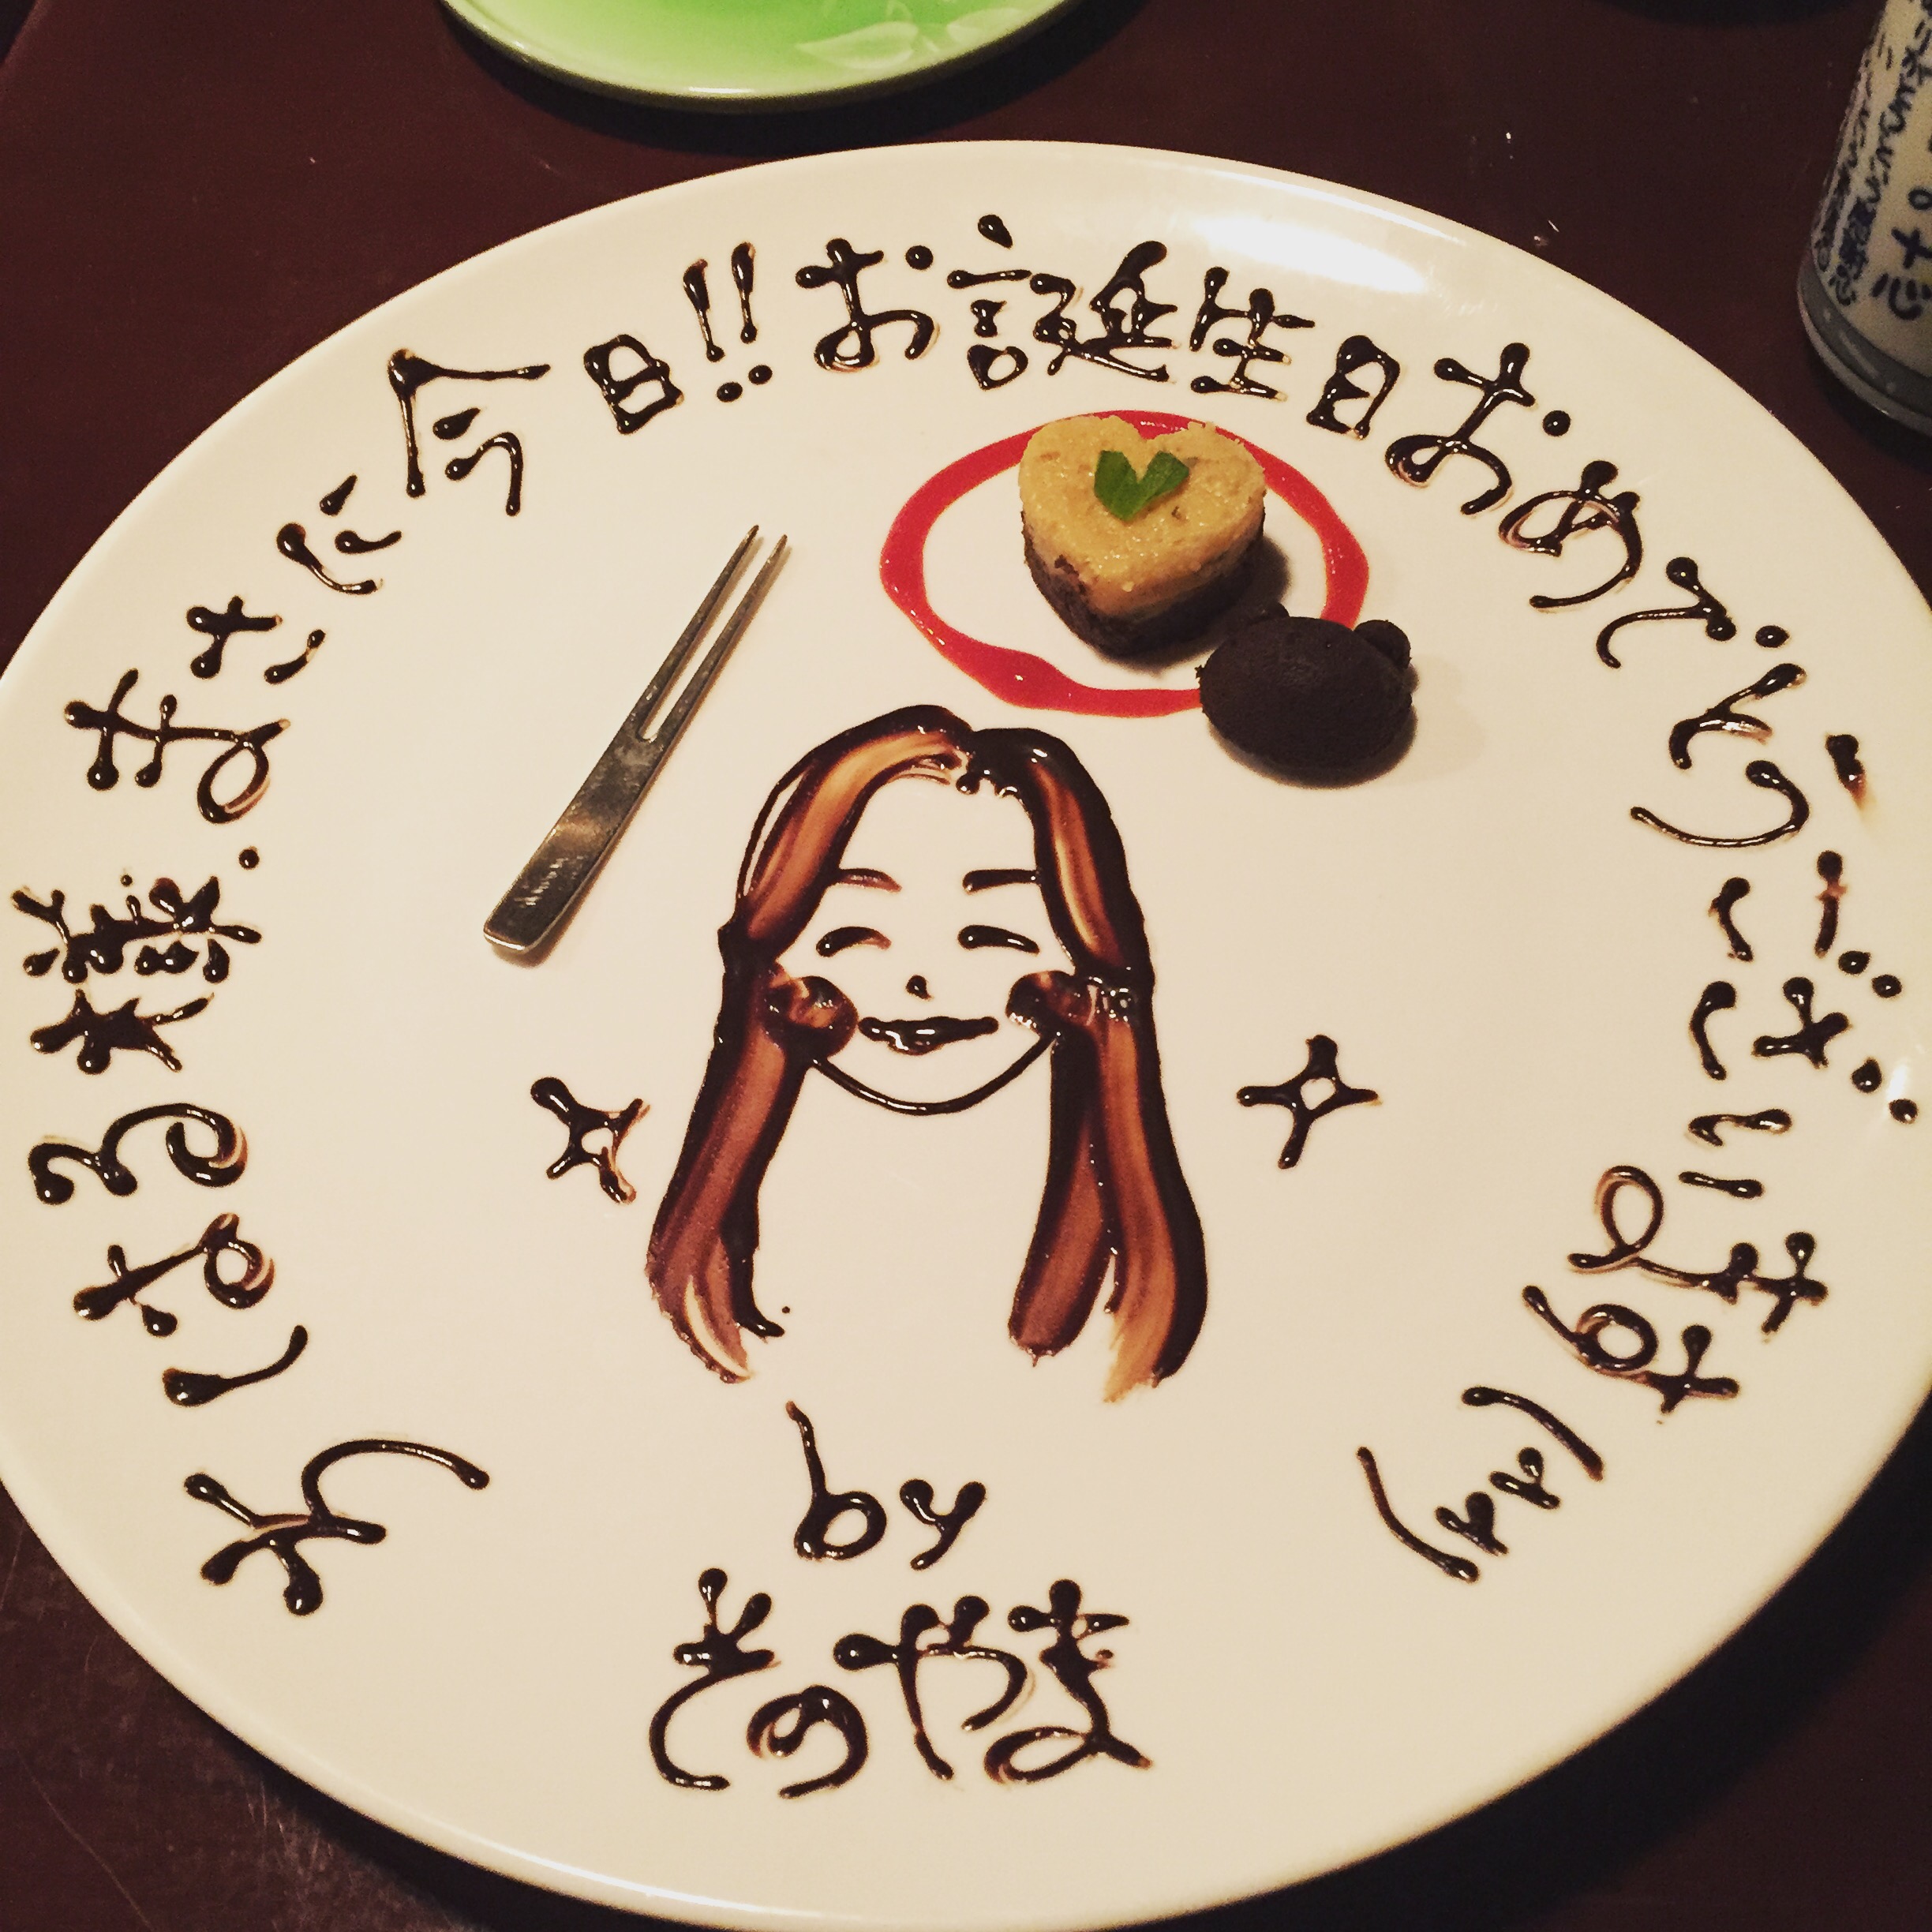 様.まさに今日!!お誕生日おめでとうございます
by
そのやま